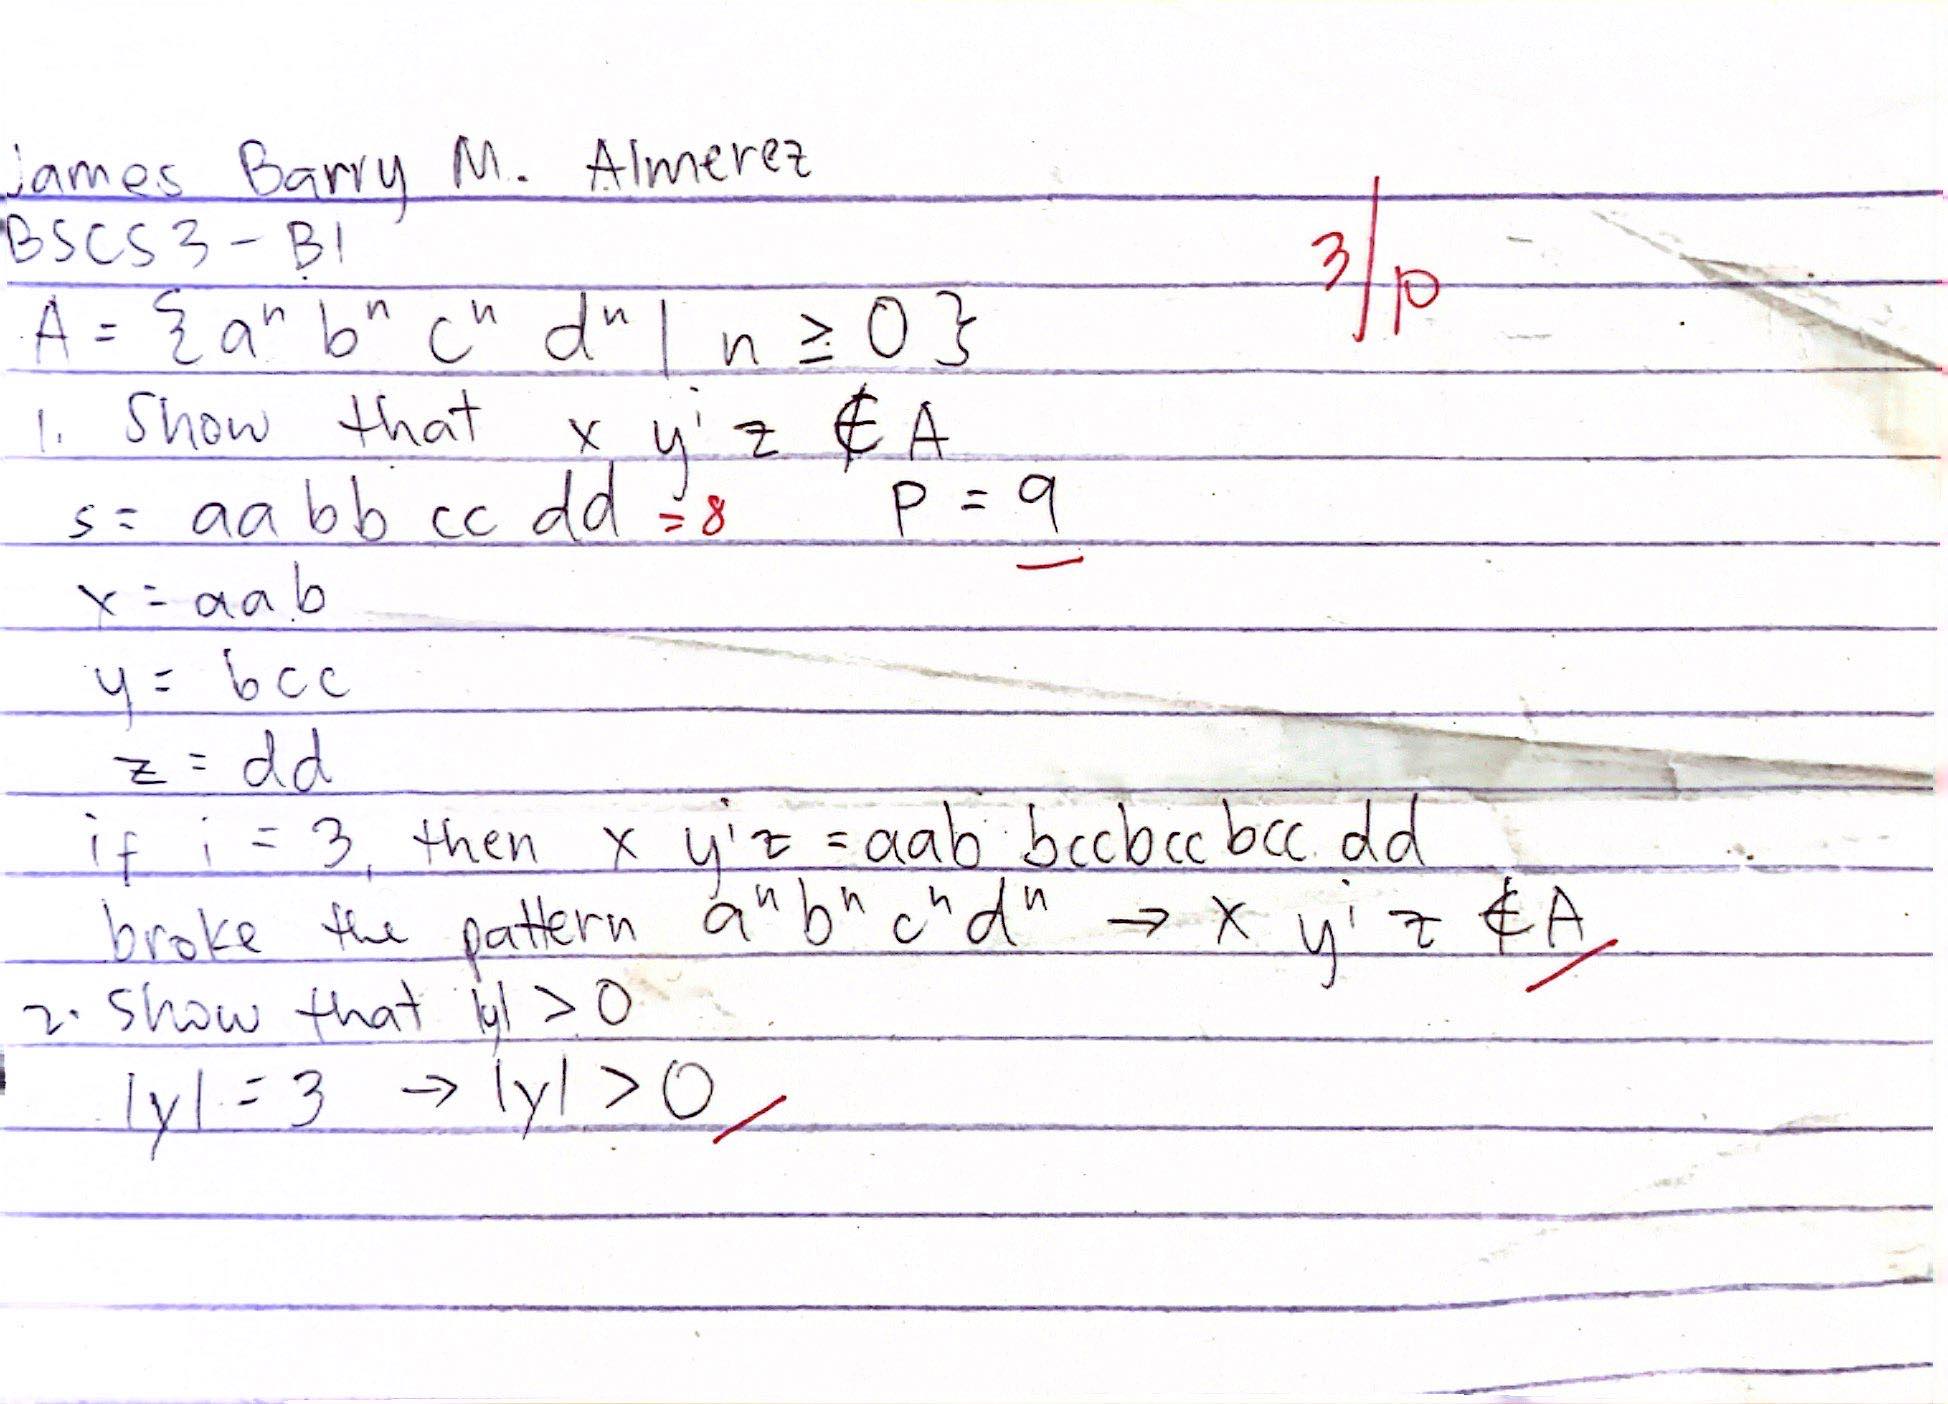 James Barry M. Almerez
BSCS3-B1
3/10
A = {aⁿ bⁿ cⁿ dⁿ | n ≥ 0}
1. Show that x yⁱ z ∉ A
s = aa bb cc dd = 8 P = 9
x = aab
y = bcc
z = dd
if i = 3, then x yⁱ z = aab bccbccbcc dd
broke the pattern aⁿ bⁿ cⁿ dⁿ → x yⁱ z ∉ A
2. Show that |y| > 0
|y| = 3 → |y| > 0